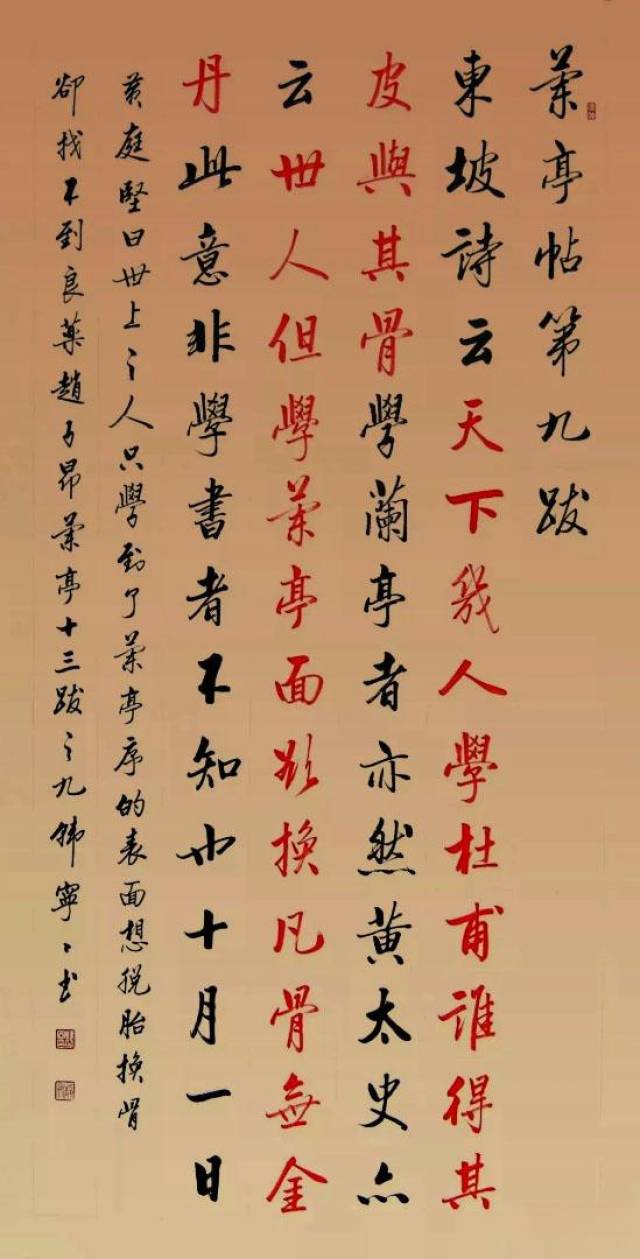 蘭亭帖第九跋
東坡詩云天下幾人學杜甫誰得其
皮與其骨學蘭亭者亦然黄太史亦
云世人但學蘭亭面欲換凡骨無金
丹此意非學書者不知也十月一日
黄庭堅曰世上之人只學到了蘭亭序的表面想脱胎換骨
卻找不到良藥趙子昂蘭亭十三跋之九韩寧寧书